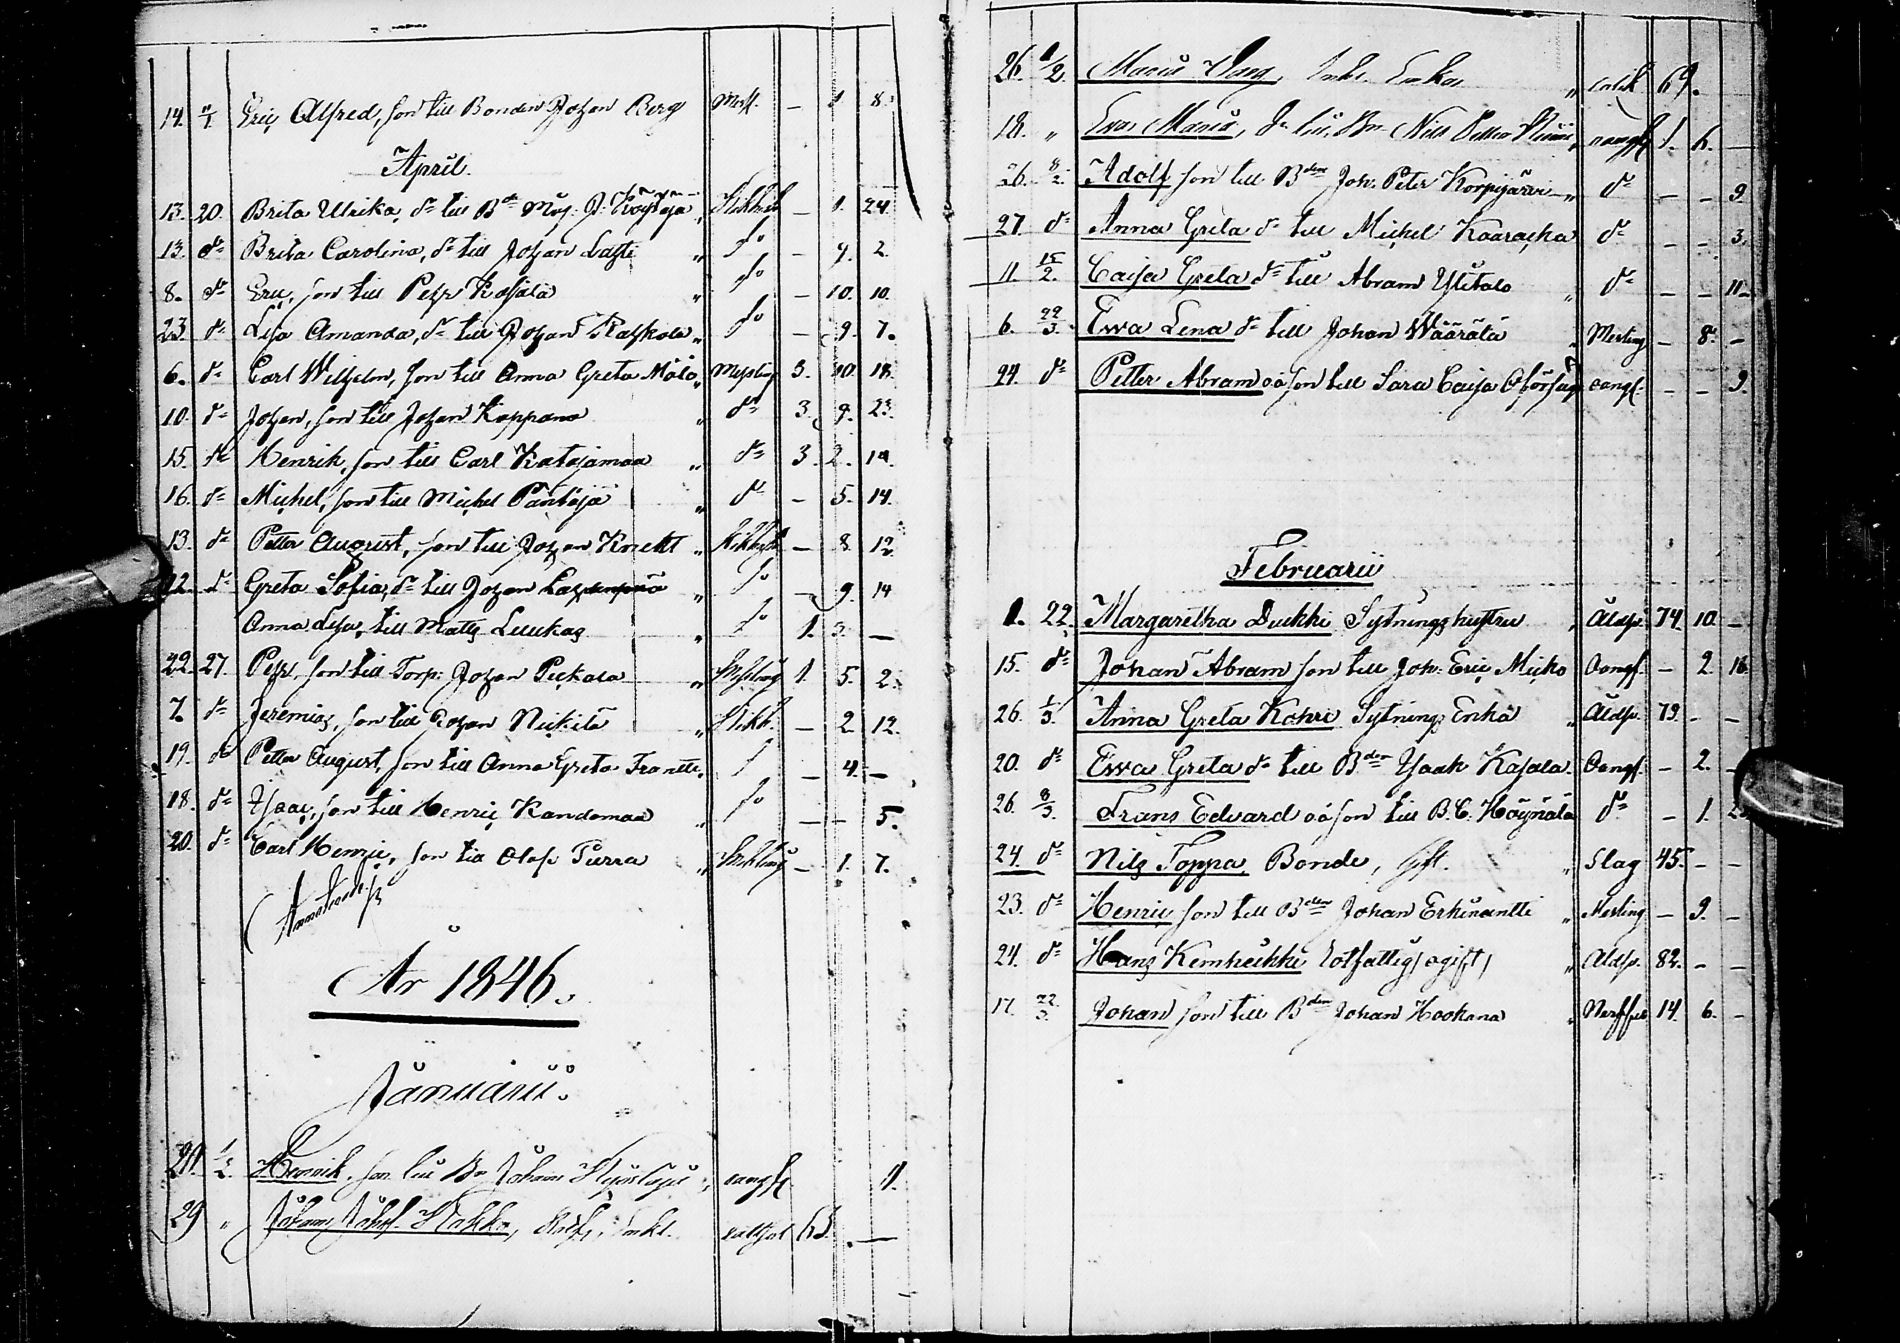 14. 11/1 Eric Alfred, son till Bonden Johan Berg Messl. — 1. 8.
April.
13. 20. Brita Ulrika, dr till Bdn Köykkä — 1. 24
13. do Brita Carolina, dr till Johan Lassi " do — 9. 2.
8. do Eric, son till Pehr Kasala " do — 10. 10.
23. do Lisa Amanda, dr till Johan Raiskola " do — 9. 7.
6. do Carl Wilhelm, son till Anna Greta Mesling 3. 10. 18.
10. do Johan, son till Johan Koppana " do 3. 9. 23.
15. do Henrik, son till Carl Katajamaa " do 3. 2. 19.
16. do Michel, son till Michel Pantsjä " do — 5. 14.
13. do Petter August, son till Johan Knekt " — 8. 12.
12. do Greta Sofia, dr till Johan " do — 9. 14
Anna Lisa, till Matts Luukas " do 1. 3. —
22. 27. Pehr, son till Torp. Johan Pekkala " 1. 5. 2.
7. do Jeremias, son till Johan Nickilä " Kikh. — 2 12.
19. do Petter August, son till Anna Greta Frantti " — 4. —
18. do Isaac, son till Henric Kandomaa " do — — 5.
20. do Carl Henric, son till Olof Purra " — 1. 7.
År 1846.
Januarii.
29. 1/2 Henrik, son till Bn Johan " 11.
29 " Johan Johns. 63. —
26. 1/2. Maria Enka " 69.
18. " Eva Maria, dr till Bn Nils Petter 1. 6. —
26. 8/2 Adolf son till Bden Joh. Peter Korpijärvi " do — — 9
27. do Anna Greta dr till Michel Kaaracka do — — 3.
11. 15/2. Caisa Greta dr till Abram Ylitalo " do — — 11.
6. 22/3. Ewa Lena dr till Johan Wäärälä " Mesling — 8. —
24. do Petter Abram oä son till Sara Caisa oangf. — — 9.
Februarii
1. 22. Margaretha Duckki Sytningshustru " Åldp. 74 10. —
15. do Johan Abram son till Joh. Eric Micko Oangf. — 2. 16
26. 1/3. Anna Greta Kohri Sytnings Enka " Åldp. 79. — —
20. do Ewa Greta dr till Bden Isaak Kasala Oangf. — 2. —
26. 8/3. Frans Edvard oä son till B. C. Höynälä do — 1. 23
24. do Nils Toppa, Bonde, gift. " Slag 45. — —
23. do Henric son till Bden Johan Erkinantti " Mesling — 9. —
24. do Hans Kemheikki Rotfattig (ogift) " Åldp. 82. — —
17. 22/3. Johan son till Bden Johan Hookana " 14. 6. —